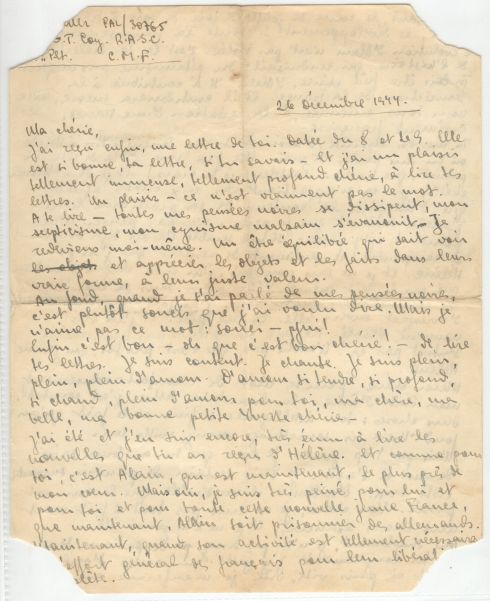 PAL/30765
G.T. Coy. R.A.S.C.
"Plt. C.M.F.
26 décembre 1944.
Ma chérie,
J'ai reçu enfin, une lettre de toi. Datée du 8 et le 9. Elle
est si bonne, ta lettre, si tu savais - Et j'ai un plaisir
tellement immense, tellement profond chérie, à lire tes
lettres. Un plaisir - ce n'est vraiment pas le mot.
A te lire - toutes mes pensées noires se dissipent, mon
scepticisme, mon cynisme malsain s'évanouit - Je
redeviens moi-même. Un être équilibré qui sait voir
les objets et apprécier les objets et les faits dans leurs
vraie forme, à leur juste valeur.
Au fond, quand je t'ai parlé de mes pensées noires,
c'est plutôt soucis que j'ai voulu dire. Mais je
n'aime pas ce mot: souci - pfui!
Enfin c'est bon - oh que c'est bon chérie! - de lire
tes lettres. Je suis content. Je chante. Je suis plein,
plein, plein d'amour. D'amour si tendre, si profond,
si chaud, plein d'amour pour toi, ma chère, ma
belle, ma bonne petite Yvette chérie -
J'ai été et j'en suis encore, très ému à lire les
nouvelles que tu as reçu d'Hélène. Et comme pour
toi, c'est Alain, qui est maintenant, le plus près de
mon cœur. Mais oui, je suis très peiné pour lui et
pour toi et pour toute cette nouvelle jeune France,
que maintenant, Alain soit prisonnier des allemands.
Maintenant, quand son activité est tellement nécessaire
l'effort général des français pour leur libérati